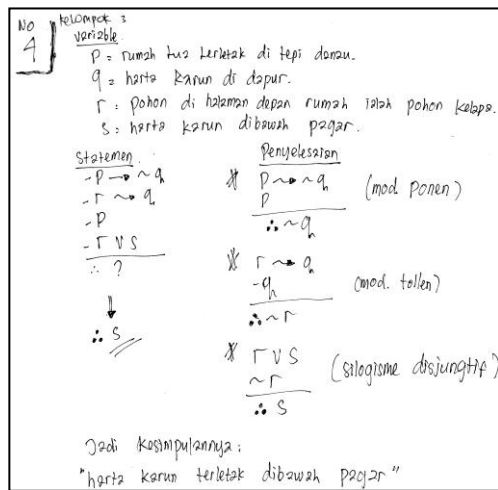 No 4
Kelompok 3
variable
P = rumah tua terletak di tepi danau.
q = harta karun di dapur.
r : pohon di halaman depan rumah ialah pohon kelapa.
s : harta karun dibawah pagar.
Statemen
- P → ~q
- r → q
- P
- r ∨ s
∴ ?
↓
∴ s
Penyelesaian
* P → ~q
P
∴ ~q
(mod. Ponen)
* r → q
-q
∴ ~r
(mod. tollen)
* r ∨ s
~r
∴ s
(silogisme disjungtif)
Jadi kesimpulannya :
"harta karun terletak dibawah pagar"